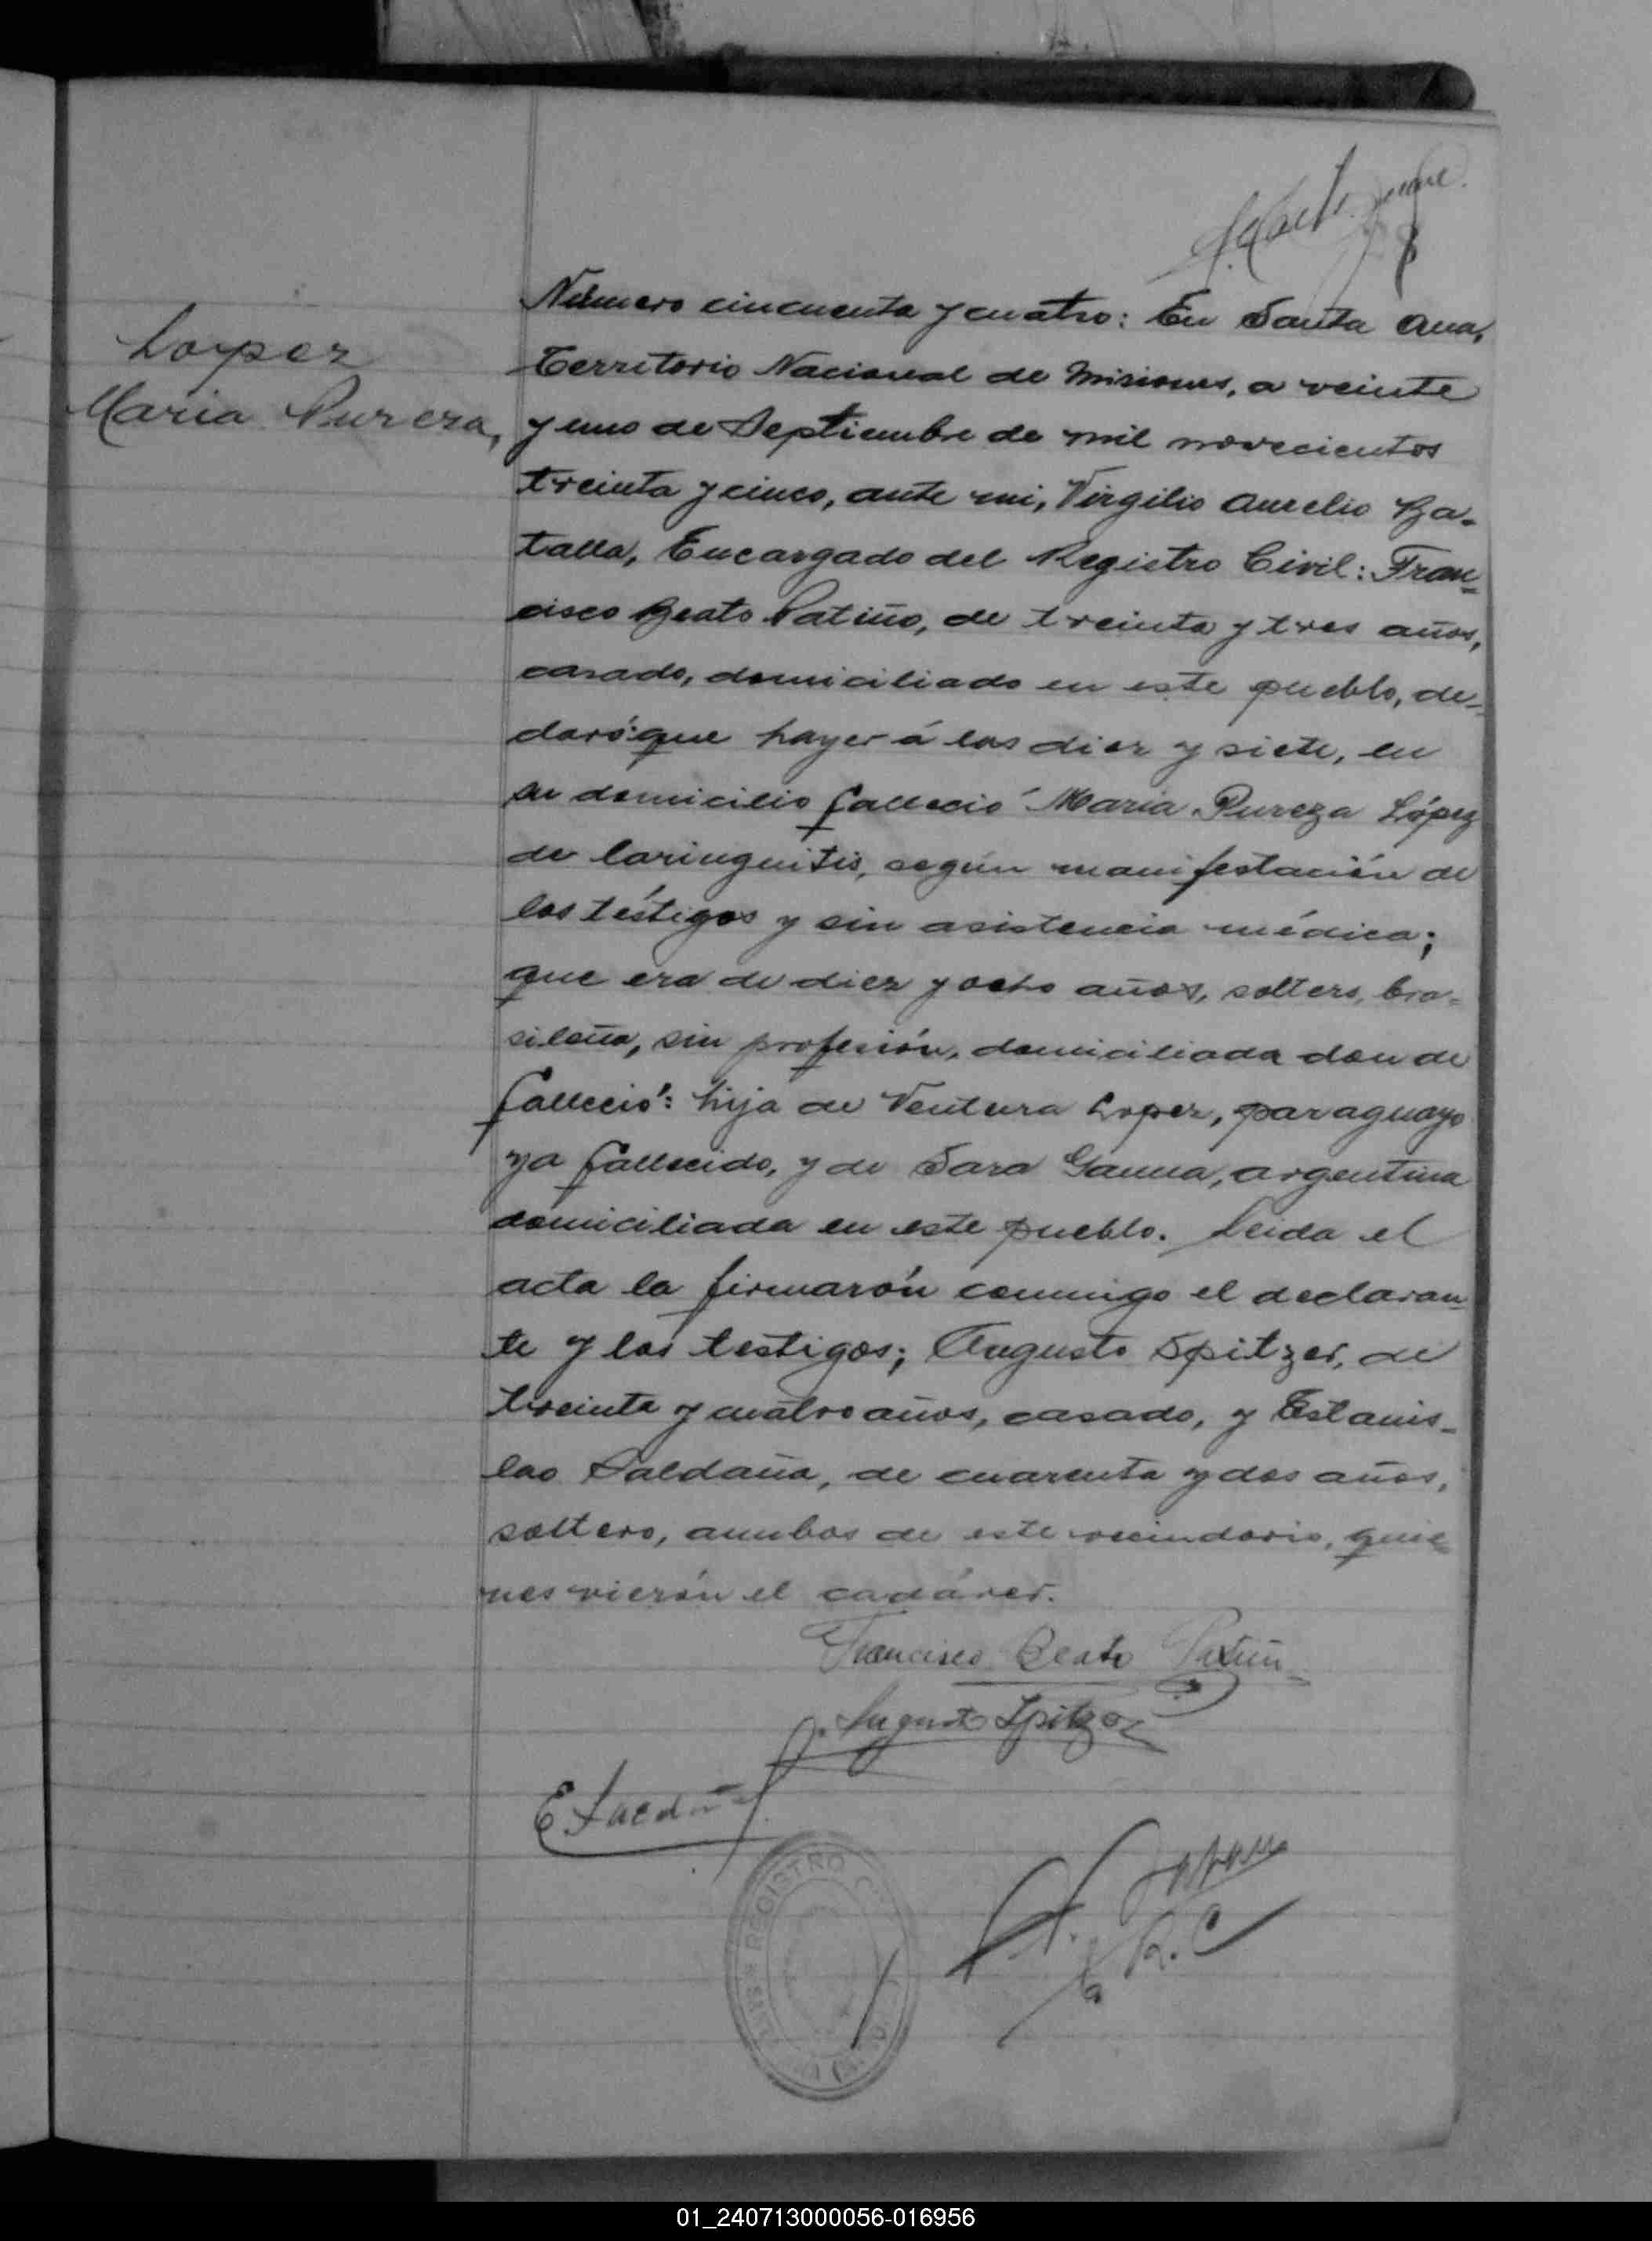 Lopez
Maria Pureza,
Número cincuenta y cuatro: En Santa Ana,
Territorio Nacional de Misiones, a veinte
y uno de Septiembre de mil novecientos
treinta y cinco, ante mi, Virgilio Aurelio Ba-
talla, Encargado del Registro Civil: Fran-
cisco Beato Patiño, de treinta y tres años,
casado, domiciliado en este pueblo, de-
claró: que hayer á las diez y siete, en
su domicilio falleció Maria Pureza López
de laringuitis, según manifestación de
los téstigos y sin asistencia médica;
que era de diez y ocho años, soltera, bra-
sileña, sin profesión, domiciliada donde
falleció: hija de Ventura Lopez, paraguayo
ya fallecido, y de Sara Gauna, argentina
domiciliada en este pueblo. Leida el
acta la firmarón conmigo el declaran-
te y los testigos; Augusto Spitzer, de
treinta y cuatro años, casado, y Estanis-
lao Saldaña, de cuarenta y dos años,
soltero, ambos de este vecindario, quie-
nes vierón el cadáver.
Francisco Beato Patiño
Augusto Spitzer
E. Saldaña
R. C
REGISTRO
01_240713000056-016956